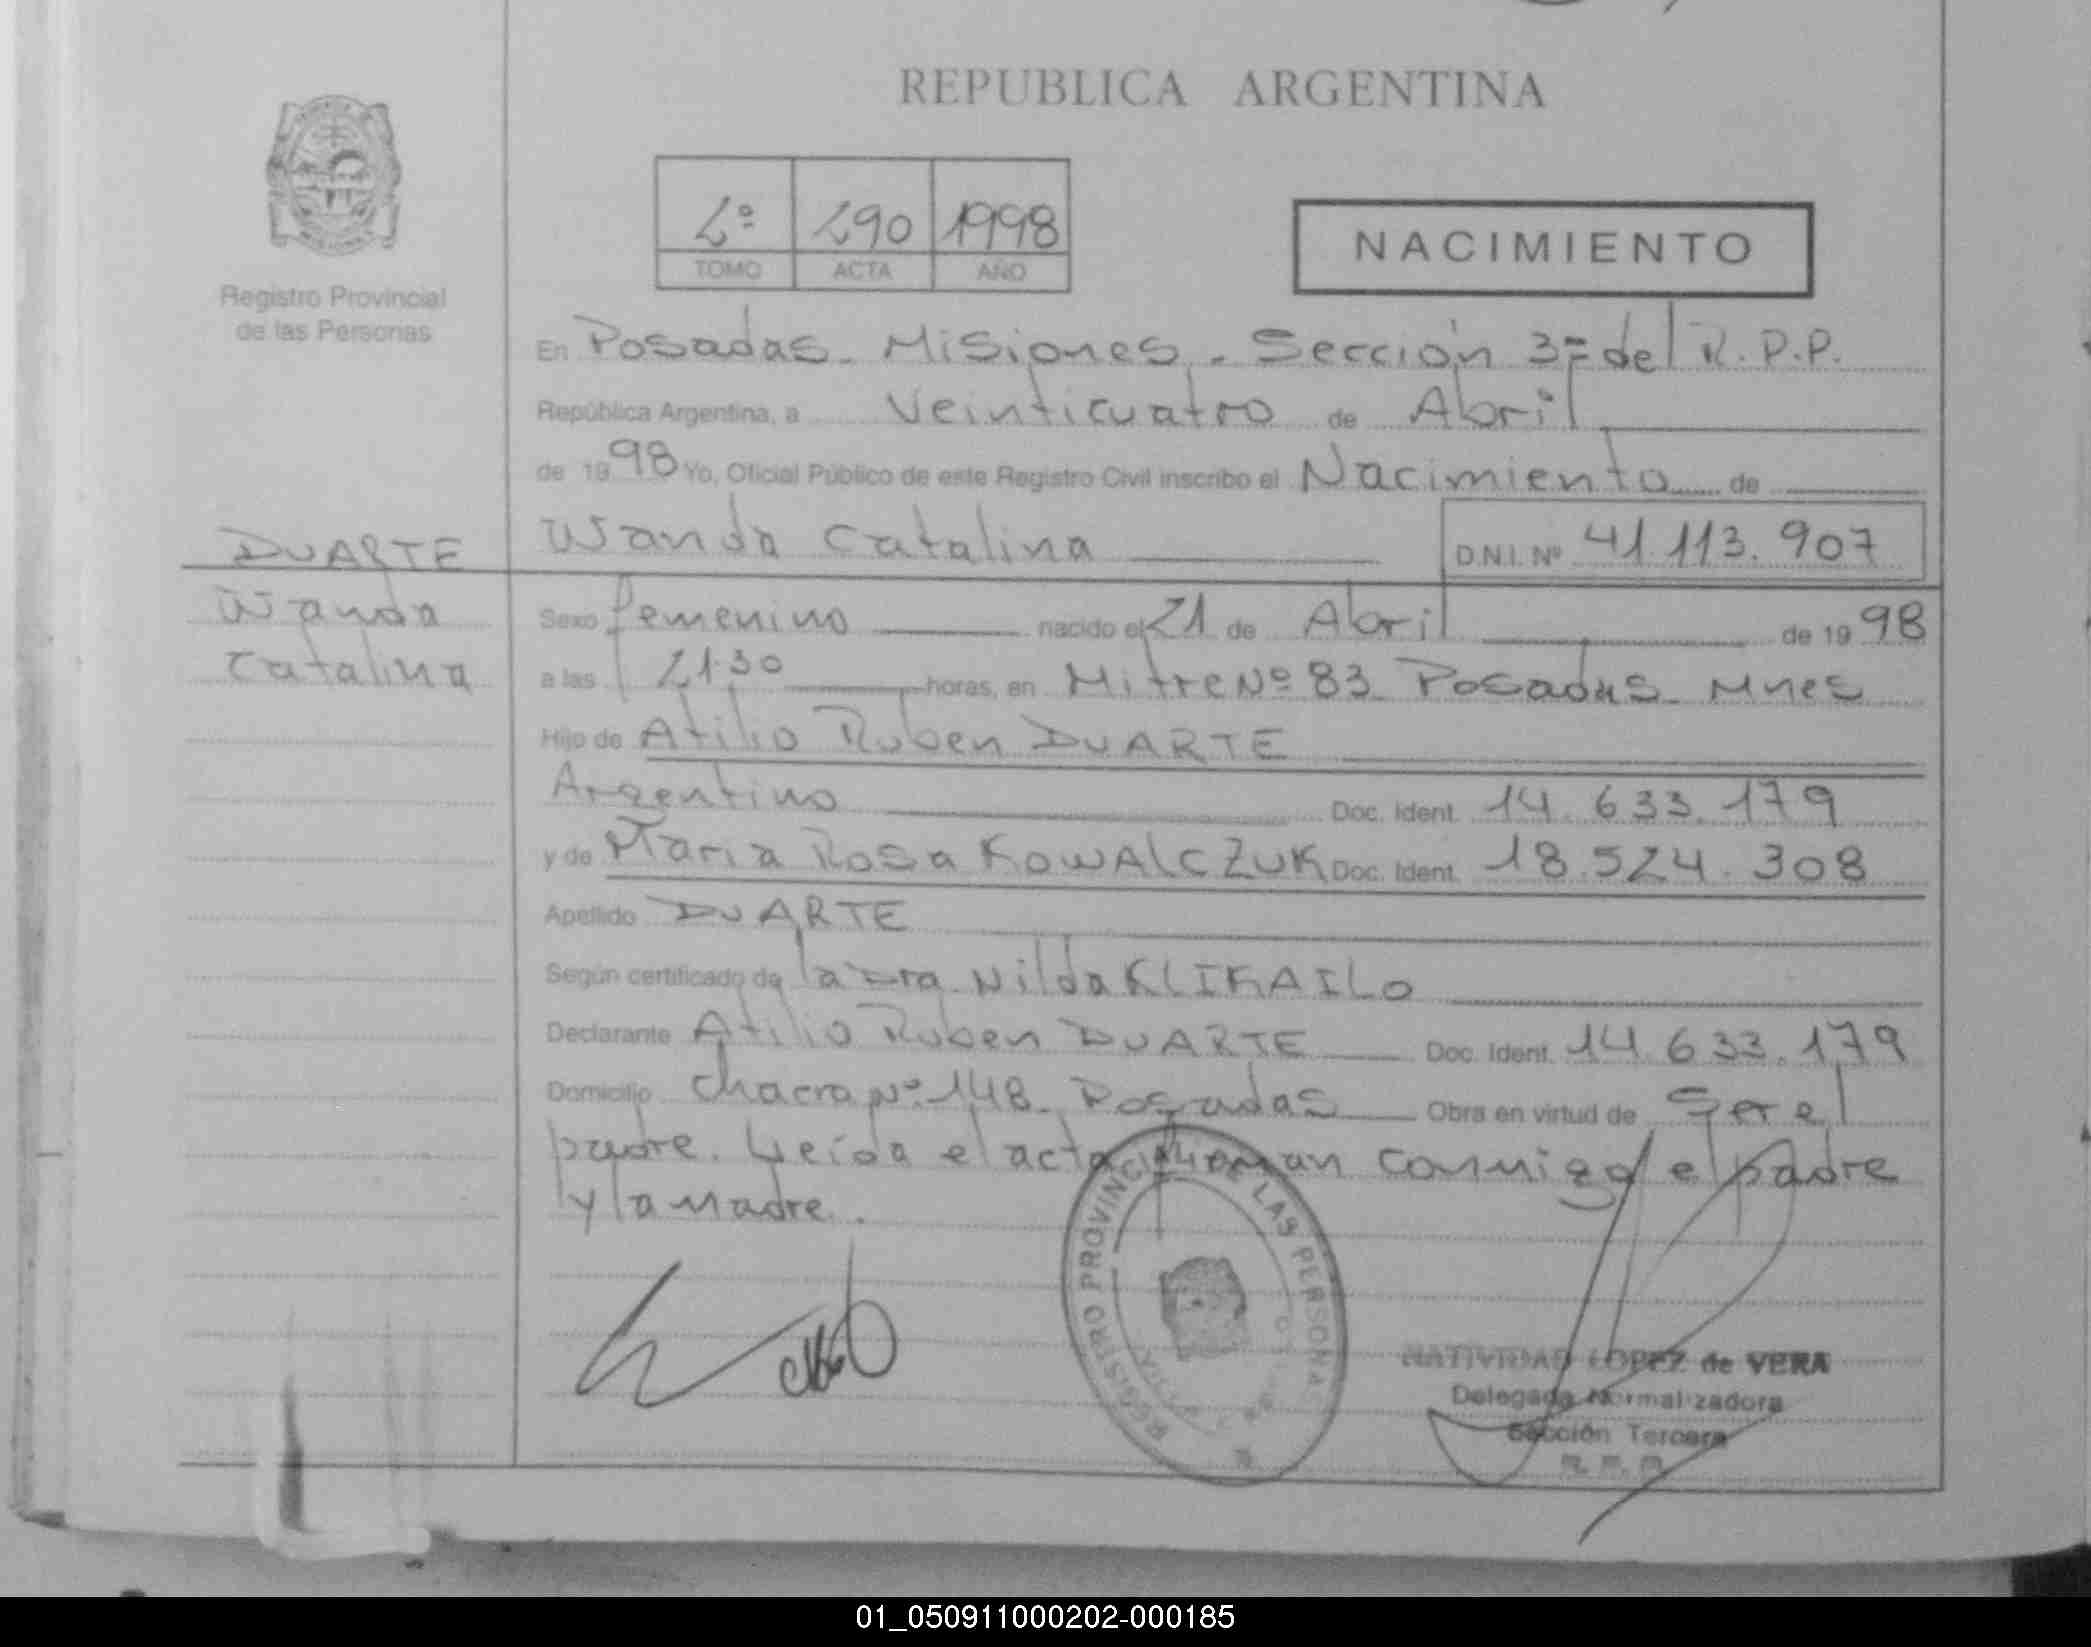 REPUBLICA ARGENTINA
Registro Provincial
de las Personas
2º 290 1998
TOMO ACTA AÑO
NACIMIENTO
En Posadas - Misiones - Sección 3ª del R.P.P.
República Argentina, a Veinticuatro de Abril
de 1998 Yo, Oficial Público de este Registro Civil inscribo el Nacimiento de
Wanda Catalina D.N.I. Nº 41.113.907
DUARTE
Wanda
Catalina
Sexo femenino nacido el 21 de Abril de 1998
a las 21.30 horas, en Mitre Nº 83 Posadas - Mnes
Hijo de Atilio Ruben DUARTE
Argentino Doc. Ident. 14.633.179
y de Maria Rosa KOWALCZUK Doc. Ident. 18.524.308
Apellido DUARTE
Según certificado de la Dra Nilda KLIKAILO
Declarante Atilio Ruben DUARTE Doc. Ident. 14.633.179
Domicilio Chacra Nº 148 Posadas Obra en virtud de Ser el
padre. Leída el acta firman conmigo el padre
y la madre.
REGISTRO PROVINCIAL DE LAS PERSONAS
NATIVIDAD LOPEZ de VERA
Delegada Normalizadora
Sección Tercera
R.P.P.
01_050911000202-000185